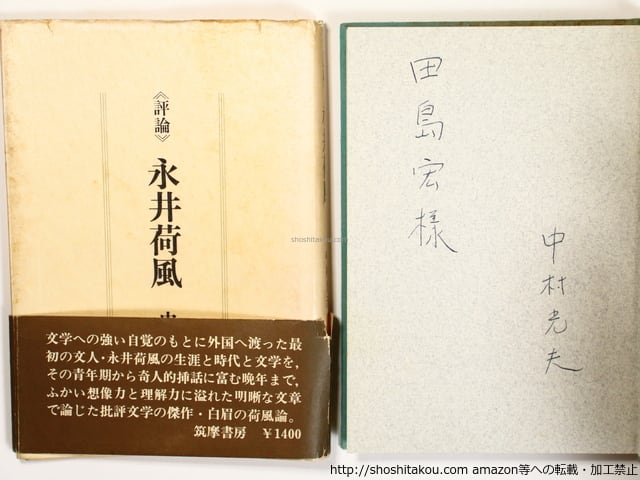 《評論》 永井荷風
文学への強い自覚のもとに外国へ渡った最
初の文人・永井荷風の生涯と時代と文学を,
その青年期から奇人的挿話に富む晩年まで,
ふかい想像力と理解力に溢れた明晰な文章
で論じた批評文学の傑作・白眉の荷風論。
筑摩書房 ¥1400
田島宏様
中村光夫
shoshitakou.com
http://shoshitakou.com amazon等への転載・加工禁止